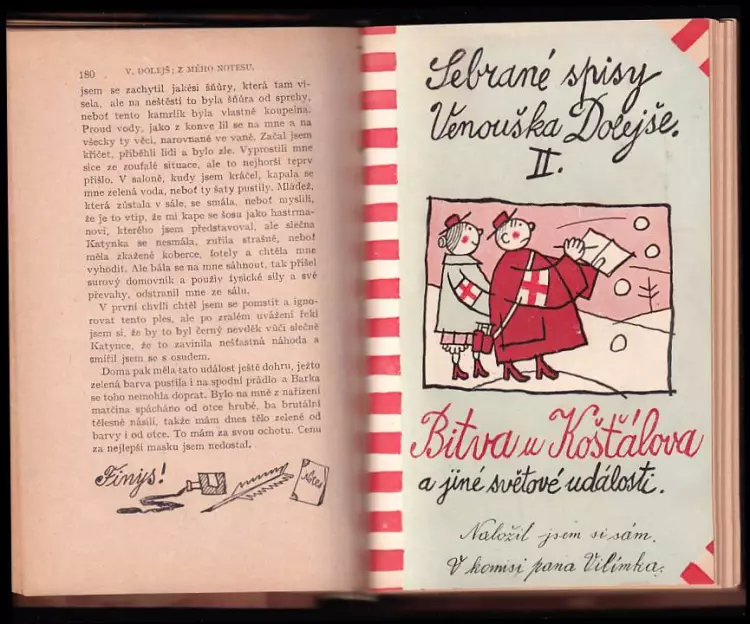 180 V. DOLEJŠ: Z MÉHO NOTESU.
jsem se zachytil jakési šňůry, která tam vi-
sela, ale na neštěstí to byla šňůra od sprchy,
neboť tento kamrlík byla vlastně koupelna.
Proud vody, jako z konve lil se na mne a na
všecky ty věci, narovnané ve vaně. Začal jsem
křičet, přiběhli lidi a bylo zle. Vyprostili mne
sice ze zoufalé situace, ale to nejhorší teprv
přišlo. V saloně, kudy jsem kráčel, kapala se
mne zelená voda, neboť ty šaty pustily. Mládež,
která zůstala v sále, se smála, neboť myslili,
že je to vtip, že mi kape se šosu jako hastrma-
novi, kterého jsem představoval, ale slečna
Katynka se nesmála, zuřila strašně, neboť
měla zkažené koberce, fotely a chtěla mne
vyhodit. Ale bála se na mne sáhnout, tak přišel
surový domovník a použiv fysické síly a své
převahy, odstranil mne ze sálu.
V první chvíli chtěl jsem se pomstit a igno-
rovat tento ples, ale po zralém uvážení řekl
jsem si, že by to byl černý nevděk vůči slečně
Katynce, že to zavinila nešťastná náhoda a
smířil jsem se s osudem.
Doma pak měla tato událost ještě dohru, ježto
zelená barva pustila i na spodní prádlo a Barka
se toho nemohla doprat. Bylo na mně z nařízení
matčina spácháno od otce hrubé, ba brutální
tělesné násilí, takže mám dnes tělo zelené od
barvy i od otce. To mám za svou ochotu. Cenu
za nejlepší masku jsem nedostal.
Finys!
Notes
Sebrané spisy
Venouška Dolejše.
II.
Bitva u Košťálova
a jiné světové události.
Naložil jsem si sám.
V komisi pana Vilímka.